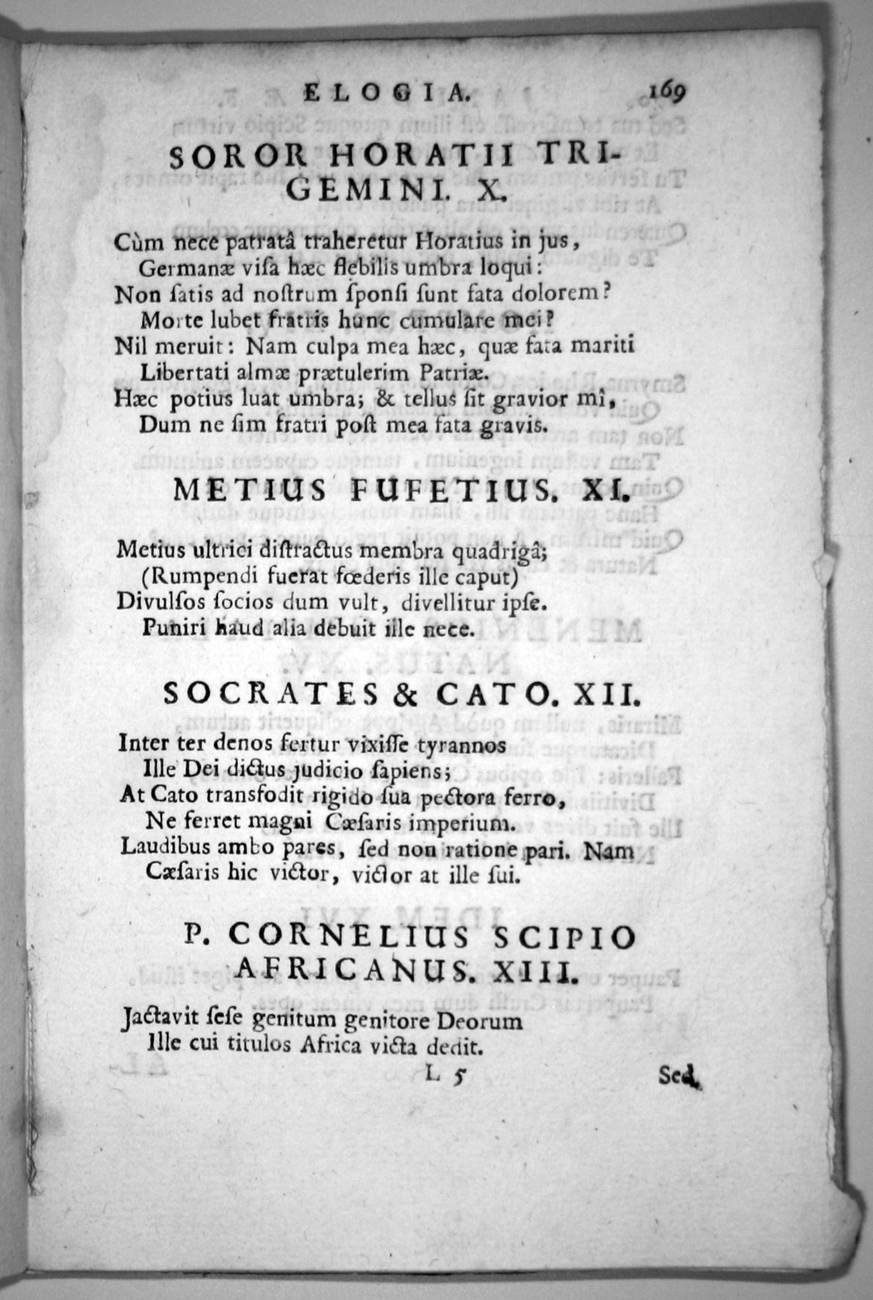 ELOGIA. 169
SOROR HORATII TRI-
GEMINI. X.
Cùm nece patratâ traheretur Horatius in jus,
Germanæ viſa hæc flebilis umbra loqui:
Non ſatis ad noſtrum ſponſi ſunt fata dolorem?
Morte lubet fratris hunc cumulare mei?
Nil meruit: Nam culpa mea hæc, quæ fata mariti
Libertati almæ prætulerim Patriæ.
Hæc potius luat umbra; & tellus ſit gravior mî,
Dum ne ſim fratri poſt mea fata gravis.
METIUS FUFETIUS. XI.
Metius ultrici diſtractus membra quadrigâ;
(Rumpendi fuerat fœderis ille caput)
Divulſos ſocios dum vult, divellitur ipſe.
Puniri haud alia debuit ille nece.
SOCRATES & CATO. XII.
Inter ter denos fertur vixiſſe tyrannos
Ille Dei dictus judicio ſapiens;
At Cato transfodit rigido ſua pectora ferro,
Ne ferret magni Cæſaris imperium.
Laudibus ambo pares, ſed non ratione pari. Nam
Cæſaris hic victor, victor at ille ſui.
P. CORNELIUS SCIPIO
AFRICANUS. XIII.
Jactavit ſeſe genitum genitore Deorum
Ille cui titulos Africa victa dedit.
L 5 Sed